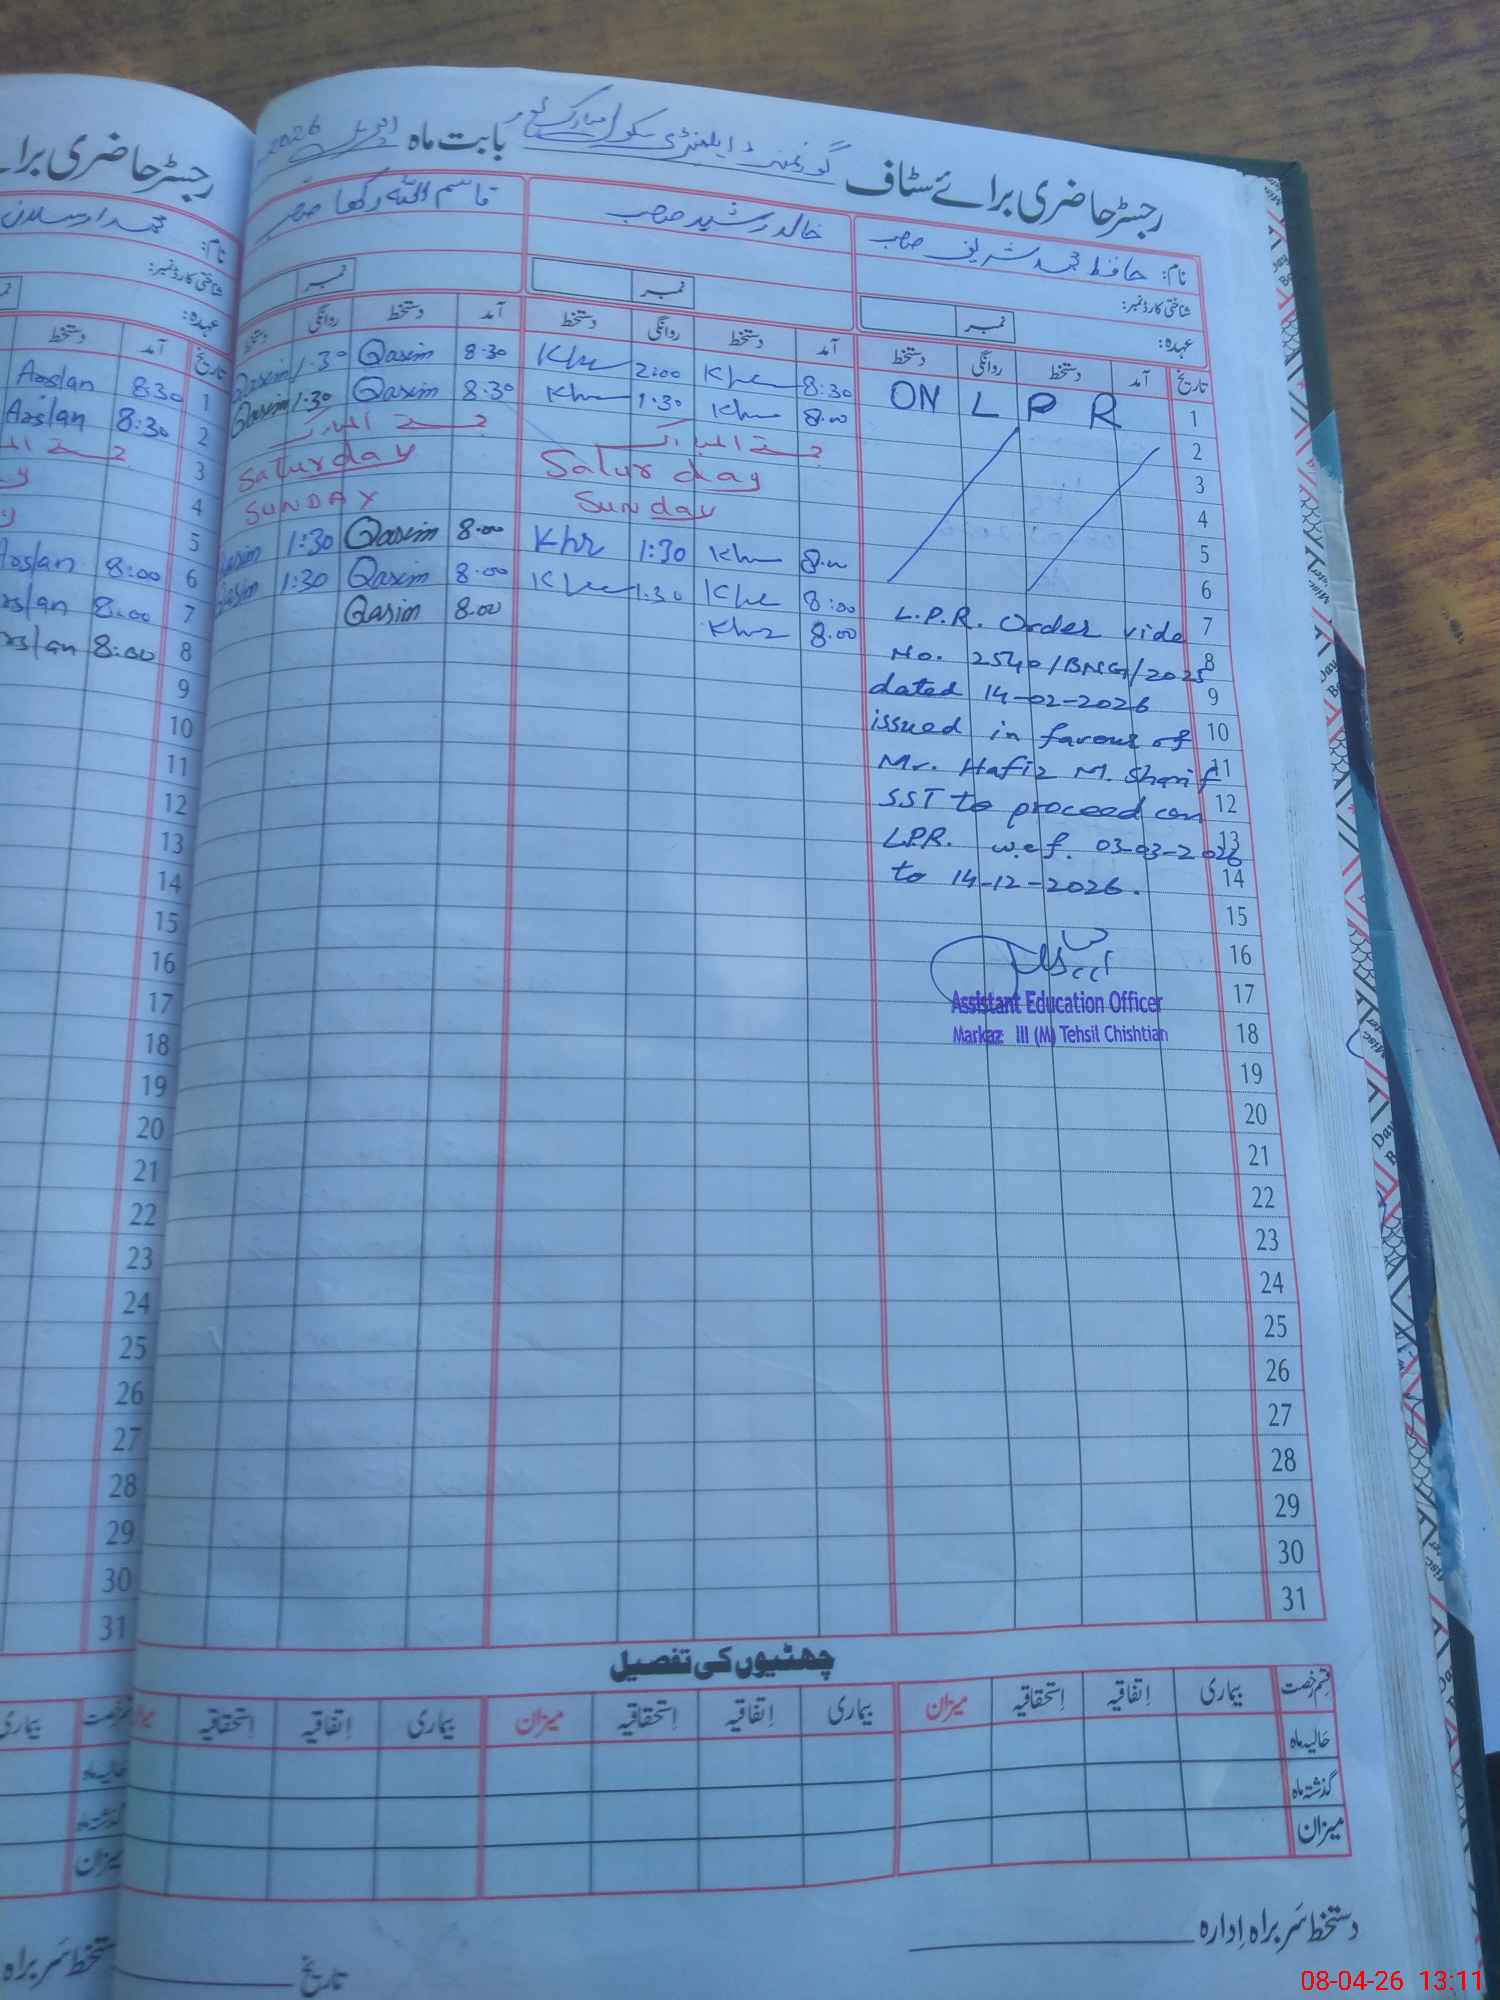 رجسٹر حاضری برائے سٹاف گورنمنٹ ایلمنٹری سکول بابت ماہ اپریل 2026
نام: حافظ محمد شریف صاحب
خالد رشید صاحب
قاسم اللہ رکھا
شناختی کارڈ نمبر:
عہدہ:
نمبر
نمبر
نمبر
تاریخ آمد دستخط روانگی دستخط
آمد دستخط روانگی دستخط
آمد دستخط روانگی دستخط
1 ON L P R
2
3
4
5
6
7 L.P.R. Order vide
8 No. 2540/BNG/2025
9 dated 14-02-2026
10 issued in favour of
11 Mr. Hafiz M. Sharif
12 SST to proceed on
13 L.P.R. w.e.f. 03-03-2026
14 to 14-12-2026.
15
16
17
18
19
20
21
22
23
24
25
26
27
28
29
30
31
Assistant Education Officer
Markaz III (M) Tehsil Chishtian
8:30 Khr 2:00 Khr
8.00 Khr 1:30 Khr
جمعۃ المبارک
Saturday
Sunday
8.00 Khr 1:30 Khr
8:00 Khr 1.30 Khr
8.00 Khr
8:30 Qasim 1:30 Qasim
8:30 Qasim 1:30 Qasim
جمعۃ المبارک
Saturday
SUNDAY
8.00 Qasim 1:30 Qasim
8.00 Qasim 1:30 Qasim
8.00 Qasim
چھٹیوں کی تفصیل
قسم رخصت بیماری اِتفاقیہ اِستحقاقیہ میزان بیماری اِتفاقیہ اِستحقاقیہ میزان بیماری اِتفاقیہ اِستحقاقیہ
حالیہ ماہ
گذشتہ ماہ
میزان
دستخط سربراہ اِدارہ
تاریخ
رجسٹر حاضری برائے
نام: محمد ارسلان
شناختی کارڈ نمبر:
عہدہ:
تاریخ آمد دستخط
1 8:30 Arslan
2 8:30 Arslan
3
4
5
6 8:00 Arslan
7 8:00 Arslan
8 8:00 Arslan
9
10
11
12
13
14
15
16
17
18
19
20
21
22
23
24
25
26
27
28
29
30
31
بیماری
حالیہ ماہ
گذشتہ ماہ
میزان
دستخط سربراہ
08-04-26 13:11